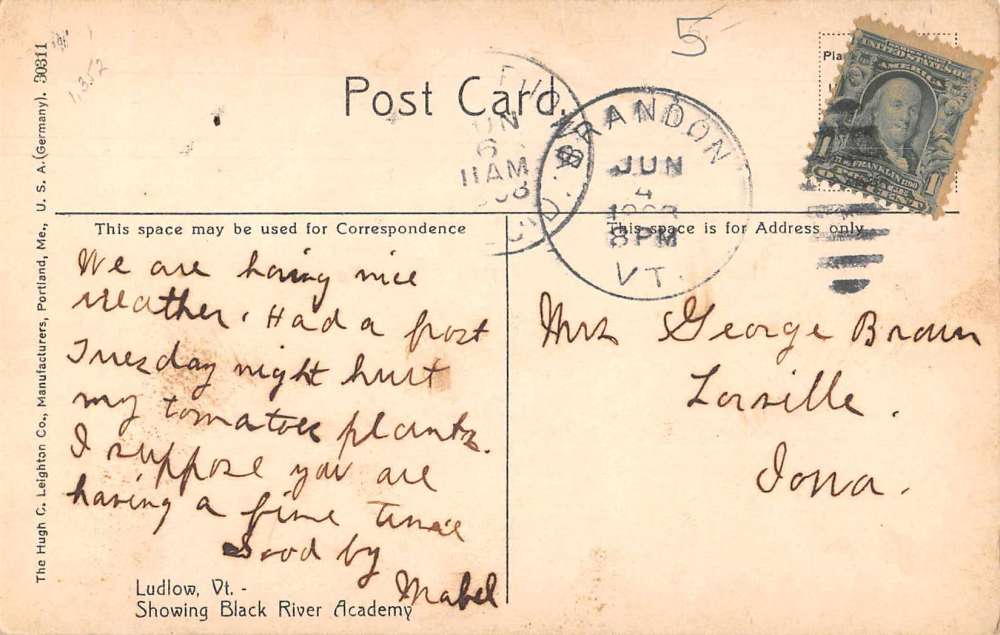 5
1,352
Post Card.
BRANDON
JUN
4
8 PM
VT.
JUN
6
11 AM
UNITED STATES OF
AMERICA
FRANKLIN
1 1
ONE CENT
This space may be used for Correspondence
This space is for Address only
We are having nice
weather. Had a frost
Tuesday night hurt
my tomatoes plants.
I suppose you are
having a fine time
Good by
Mabel
Mrs George Brown
Iowa.
Ludlow, Vt. -
Showing Black River Academy
The Hugh C. Leighton Co., Manufacturers, Portland, Me., U. S. A. (Germany). 30311